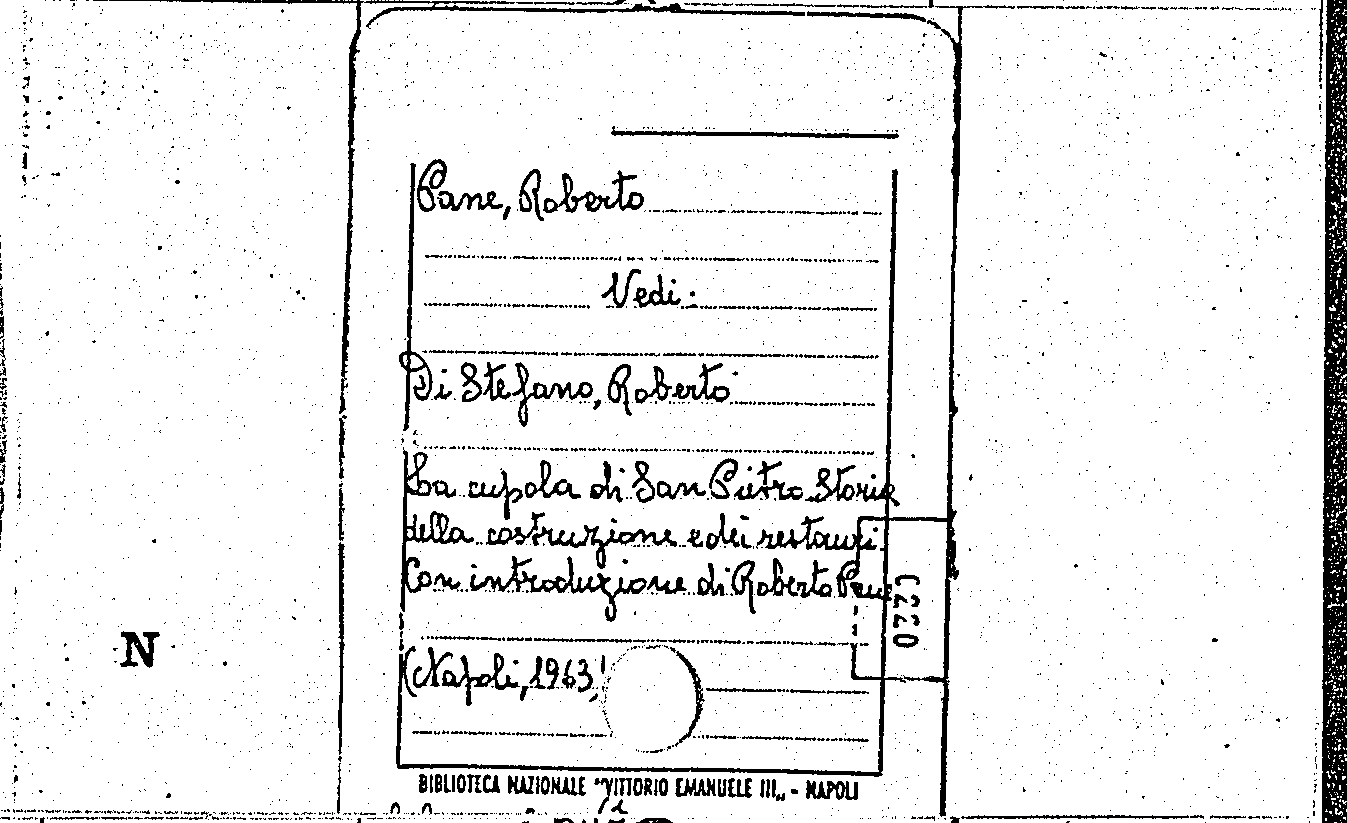 Pane, Roberto
Vedi:
Di Stefano, Roberto
La cupola di San Pietro. Storia
della costruzione e dei restauri.
Con introduzione di Roberto Pane
(Napoli, 1963)
N
BIBLIOTECA NAZIONALE "VITTORIO EMANUELE III„ - NAPOLI